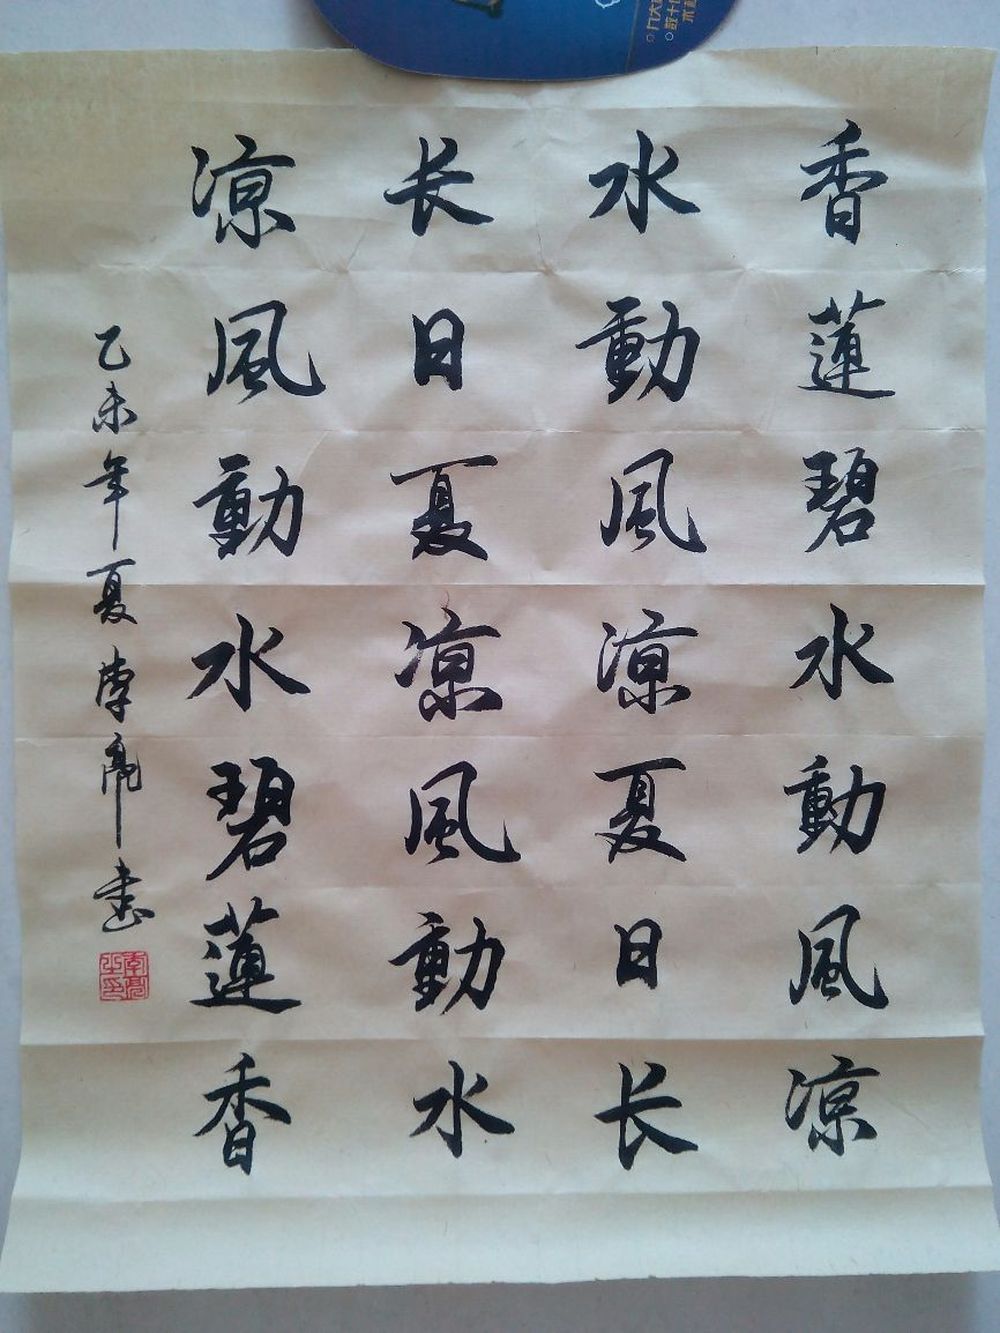 香蓮碧水動風凉
水動風凉夏日长
长日夏凉風動水
凉風動水碧蓮香
乙未年夏李亮书